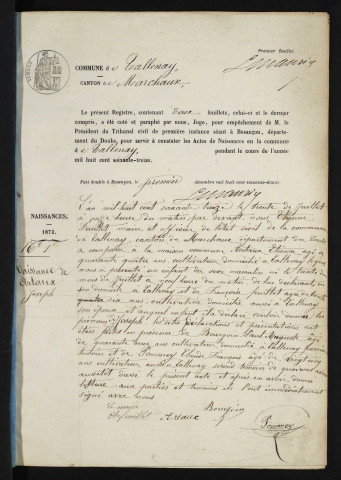 Premier feuillet
COMMUNE de Tallenay
CANTON de Marchaux
Le présent Registre, contenant deux feuillets, celui-ci et le dernier
compris, a été coté et paraphé par nous, Juge, pour empêchement de M. le
Président du Tribunal civil de première instance séant à Besançon, département
du Doubs, pour servir à constater les Actes de Naissances en la commune
de Tallenay pendant le cours de l'année
mil huit cent soixante-treize.
Fait double à Besançon, le premier décembre mil huit cent soixante-douze.
NAISSANCES.
1873.
Naissance de
Joseph
L'an mil huit cent soixante treize le trente de juillet
à onze heures du matin par devant nous Etienne
maire et officier de l'état civil de la commune
de Tallenay, canton de Marchaux, département du Doubs
a comparu à la maison commune, Etienne âgé de
quarante quatre ans, cultivateur domicilié à Tallenay lequel
nous a présenté un enfant du sexe masculin né le trente du
mois de juillet à neuf heures du matin, de lui déclarant en
son domicile à Tallenay et de âgée de trente
quatre ans, cultivatrice domiciliée aussi à Tallenay
son épouse, et auquel enfant il a déclaré vouloir donner les
prénoms de Joseph; les dites déclarations et présentations ont
été faites en présence de Bourgoin Paul Auguste âgé
de quarante ans, cultivateur domicilié à Tallenay premier
témoin et de Pommey François âgé de vingt cinq
ans cultivateur aussi à Tallenay second témoin de
aussitôt dressé le présent acte et après en avoir donné
lecture aux parties et témoins ils l'ont immédiatement
signé avec nous
Le maire
Bourgoin
Pommey